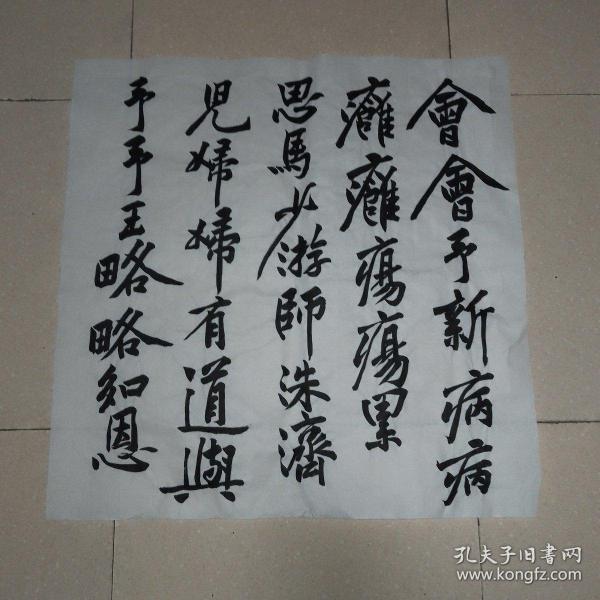 會會予新病病
癱癱瘍瘍累
思馬少游師洙濟
児婦婦有道與
予予王略略知恩
孔夫子旧書网
www.kongfz.com